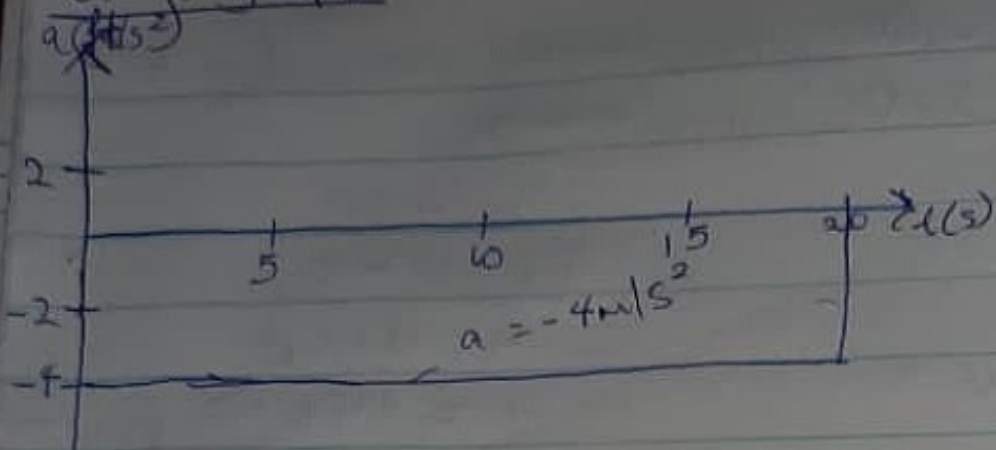 a (m/s²)
2
5
10
15
20
t(s)
-2
a = -4m/s²
-4